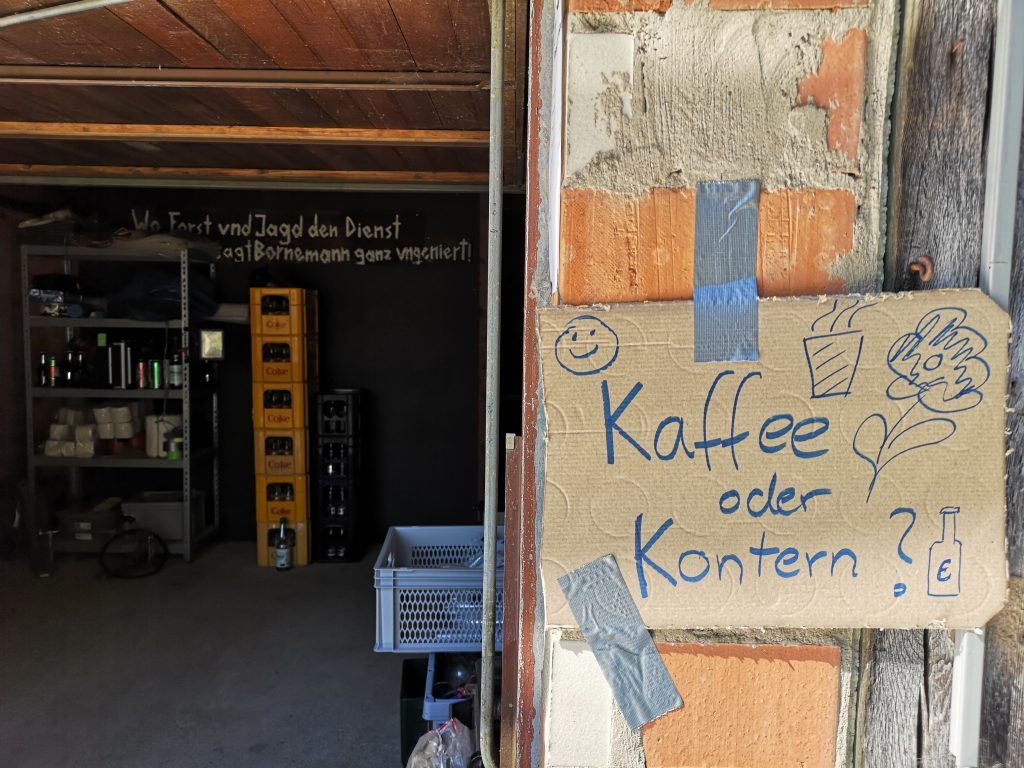 Wo Forst vnd Jagd den Dienst
Bornemann ganz vngeniert!
Coke
Coke
Coke
Coke
Coke
Coke
Kaffee
oder
Kontern ?
€